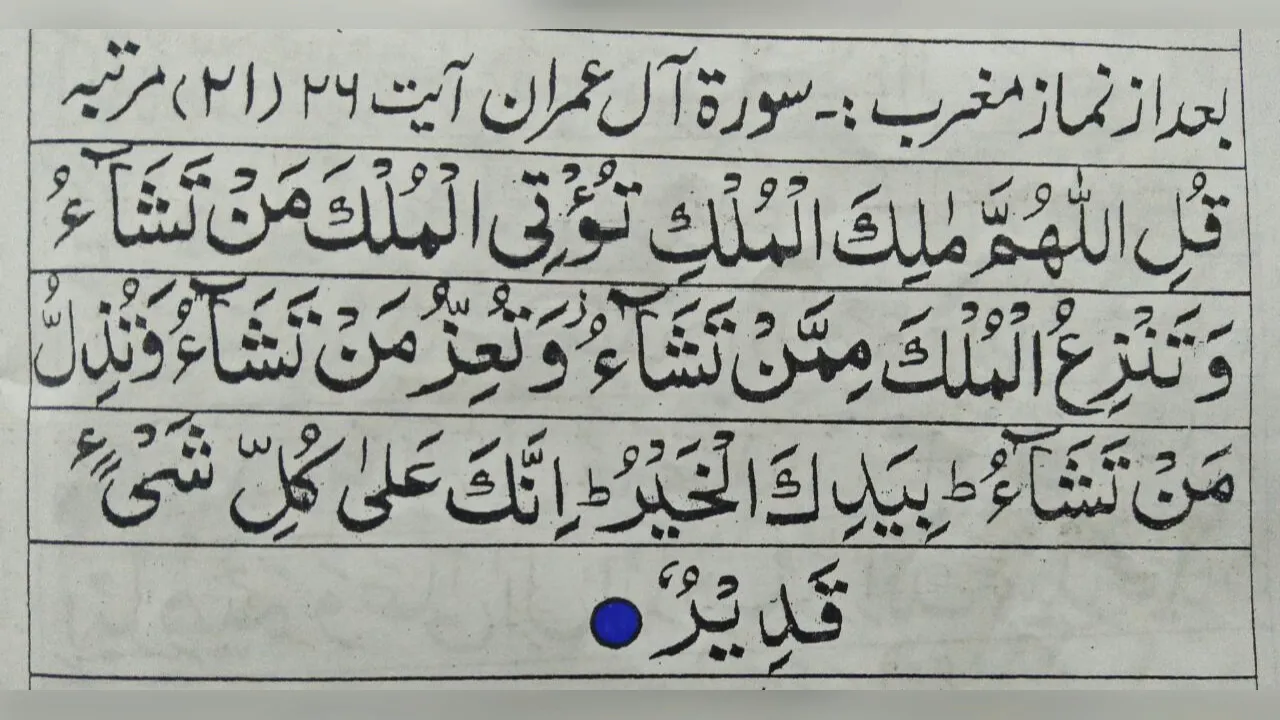 بعد از نماز مغرب :۔ سورة آل عمران آیت ۲۶ (۲۱) مرتبہ
قُلِ اللّٰهُمَّ مٰلِكَ الْمُلْكِ تُؤْتِی الْمُلْكَ مَنْ تَشَآءُ
وَ تَنْزِعُ الْمُلْكَ مِمَّنْ تَشَآءُ ز وَ تُعِزُّ مَنْ تَشَآءُ وَ تُذِلُّ
مَنْ تَشَآءُ ؕ بِیَدِكَ الْخَیْرُ ؕ اِنَّكَ عَلٰی كُلِّ شَیْءٍ
قَدِیْرٌ